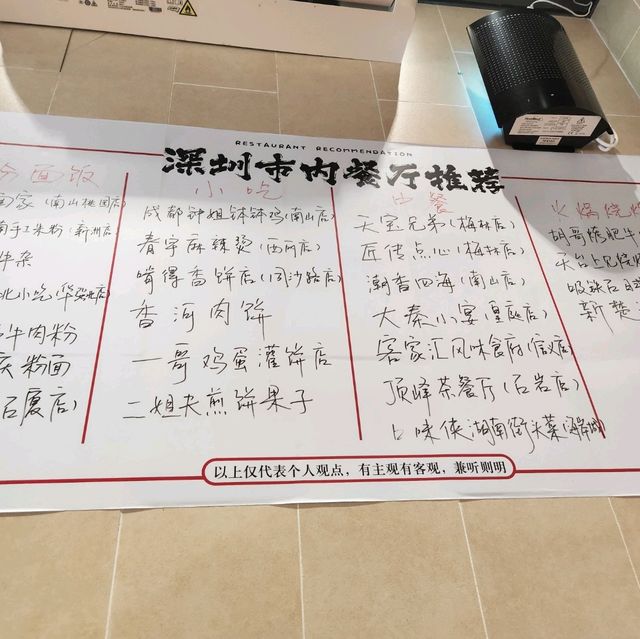 RESTAURANT RECOMMENDATION
深圳市内餐厅推荐
粉面饭
(南山桃园店)
手工米粉(新洲店)
牛杂
北小吃(华强北店)
牛肉粉
粉面
石厦店)
小吃
成都钟姐钵钵鸡(南山店)
春宇麻辣烫(西丽店)
啃得香饼店(同沙路店)
香河肉饼
一哥鸡蛋灌饼店
二姐夫煎饼果子
中餐
天宝兄弟(梅林店)
匠传点心(梅林店)
潮香四海(南山店)
大秦小宴(皇庭店)
客家汇风味食府(店)
顶峰茶餐厅(石岩店)
口味侠湖南街头菜
火锅烧烤
胡哥烤肥牛
天台上
新楚
以上仅代表个人观点，有主观有客观，兼听则明